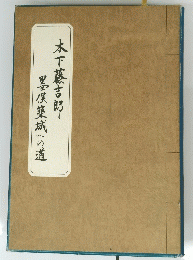 木下藤吉郎と
墨俣築城への道